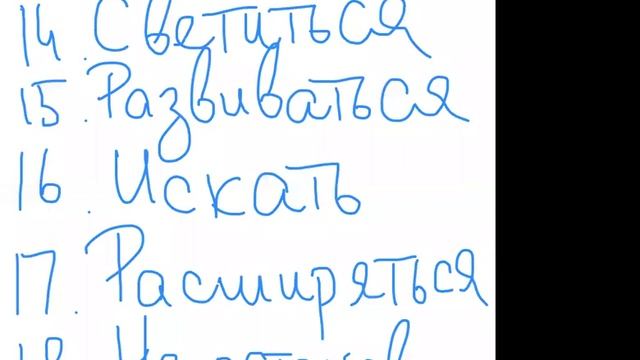 14. Светиться
15. Развиваться
16. Искать
17. Расширяться
18.